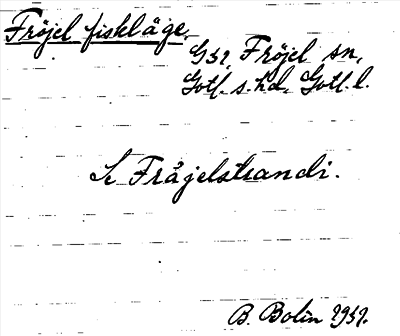 Fröjel fiskläge.
G32, Fröjel sn,
Gotl. s. hd. Gotl. l.
Se Fråjelstrandi.
B. Bolin 1932.